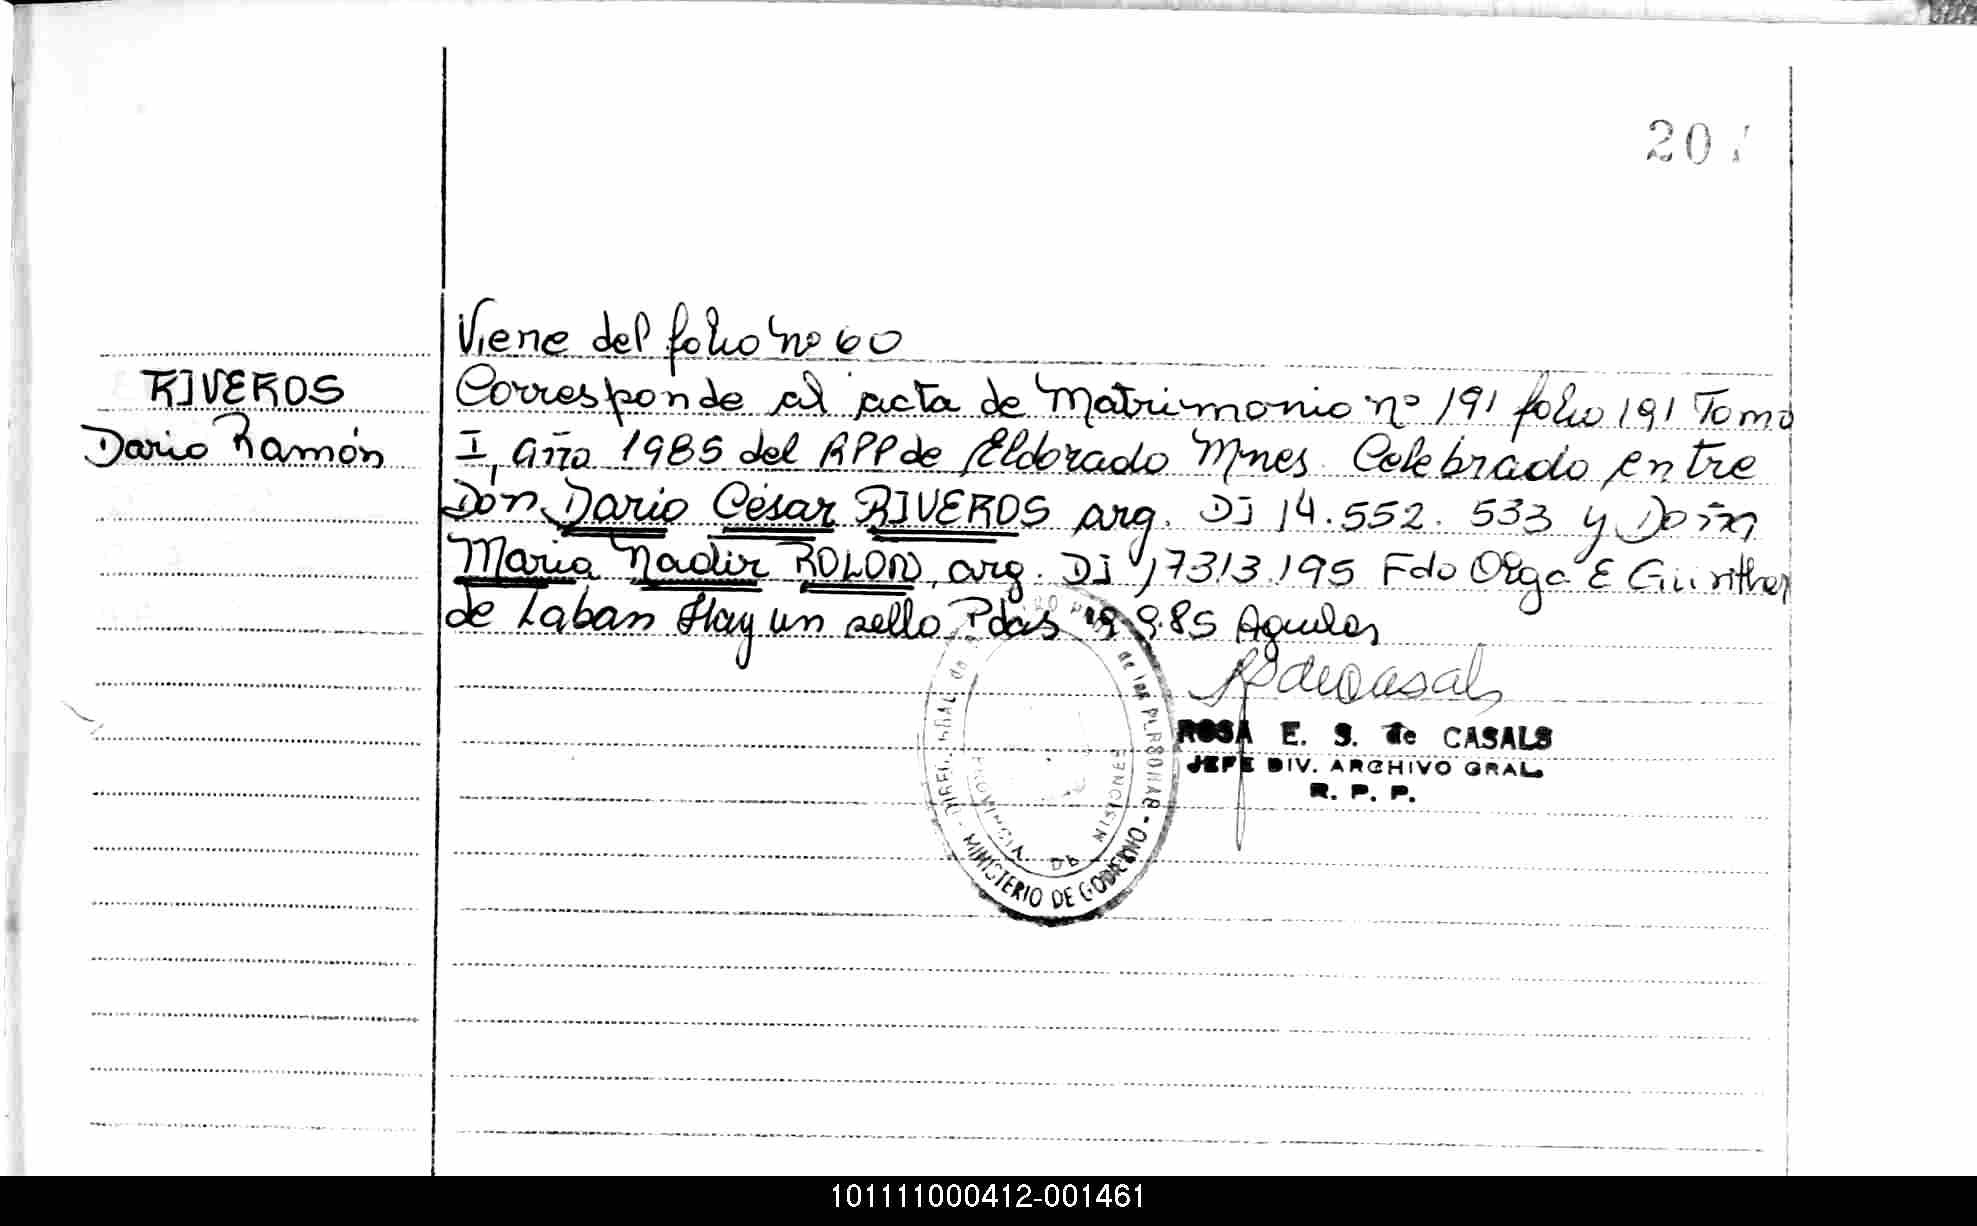 20
Viene del folio nº 60
RIVEROS
Dario Ramón
Corresponde al acta de Matrimonio nº 191 folio 191 Tomo
I, año 1985 del RPP de Eldorado Mnes. Celebrado entre
Don Dario César RIVEROS arg. DI 14.552.533 y Doña
Maria Nadir ROLON, arg. DI 17313.195 Fdo Olga E Günther
de Laban Hay un sello Pdas 9.85 Aguiles
ROSA E. S. de CASALS
JEFE DIV. ARCHIVO GRAL.
R. P. P.
de las PERSONAS - MINISTERIO DE GOBIERNO -
PROVINCIA DE MISIONES
101111000412-001461